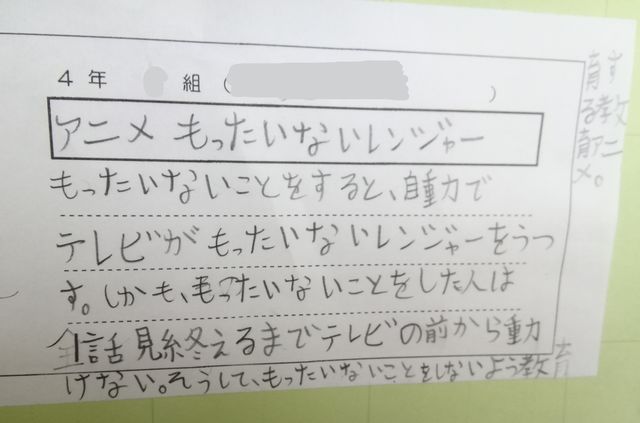 4年 組( )
アニメ もったいないレンジャー
もったいないことをすると、自動力で
テレビがもったいないレンジャーをうつ
す。しかも、もったいないことをした人は
全話見終えるまでテレビの前から動
けない。そうして、もったいないことをしないよう教育
する教育アニメ。